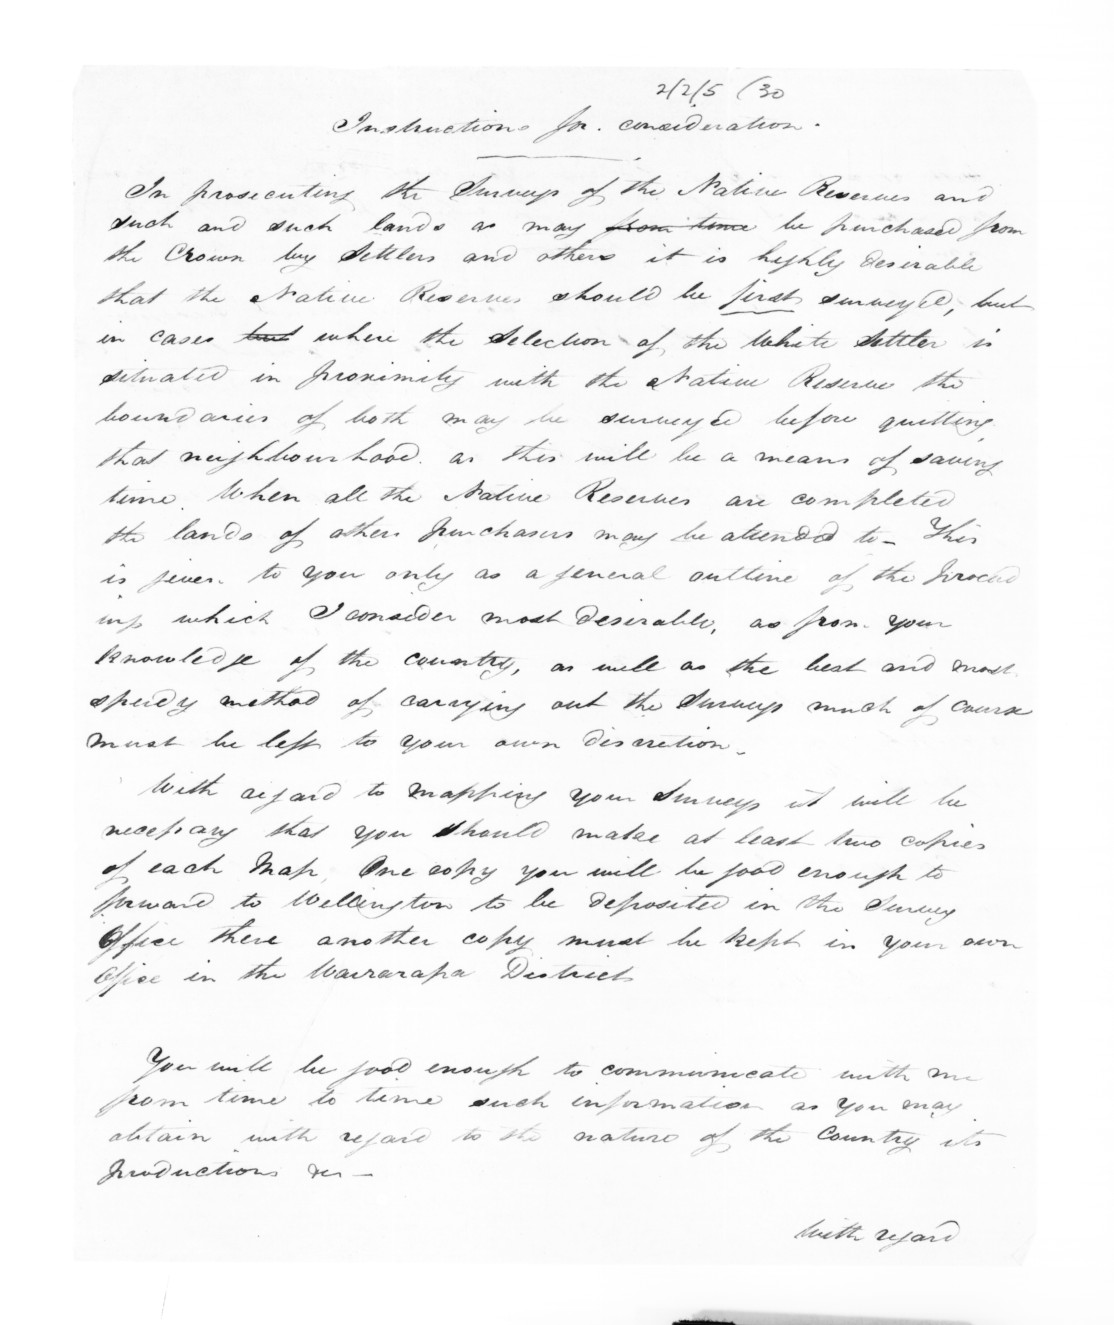 2/2/5 (30
Instructions for consideration.
In prosecuting the Surveys of the Native Reserves and
such and such lands as may from time be purchased from
the Crown by Settlers and others it is highly desirable
that the Native Reserves should be first surveyed, but
in cases where the selection of the White Settler is
situated in proximity with the Native Reserve the
boundaries of both may be surveyed before quitting
that neighbourhood. as this will be a means of saving
time. When all the Native Reserves are completed
the lands of others purchasers may be attended to - This
is given to you only as a general outline of the proceed
ings which I consider most desirable, as from your
knowledge of the country, as well as the best and most
speedy method of carrying out the Surveys much of course
must be left to your own discretion.
With regard to mapping your Surveys it will be
necessary that you should make at least two copies
of each Map. One copy you will be good enough to
forward to Wellington to be deposited in the Survey
Office there another copy must be kept in your own
Office in the Wairarapa District
You will be good enough to communicate with me
from time to time such information as you may
obtain with regard to the nature of the Country its
productions &c -
With regard